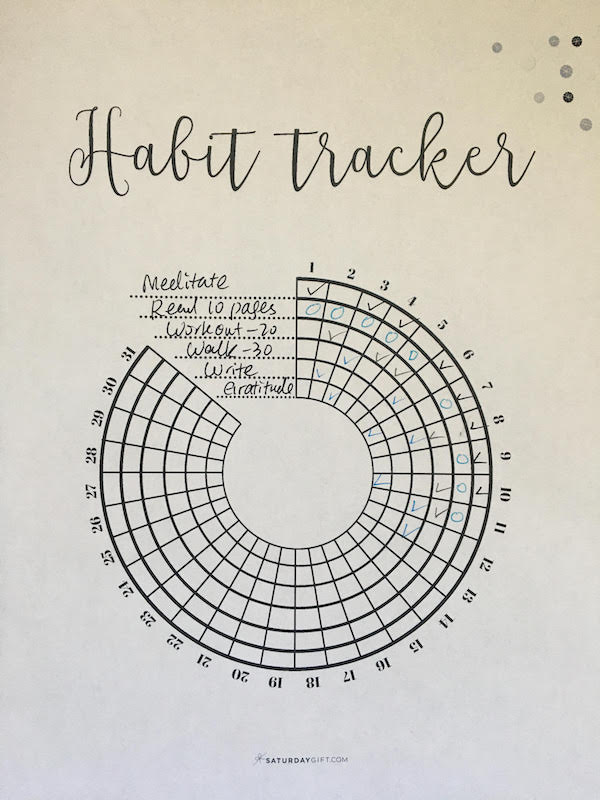 Habit tracker
Meditate
Read 10 pages
Workout - 20
Walk - 30
Write
Gratitude
1
2
3
4
5
6
7
8
9
10
11
12
13
14
15
16
17
18
19
20
21
22
23
24
25
26
27
28
29
30
31
SATURDAYGIFT.COM